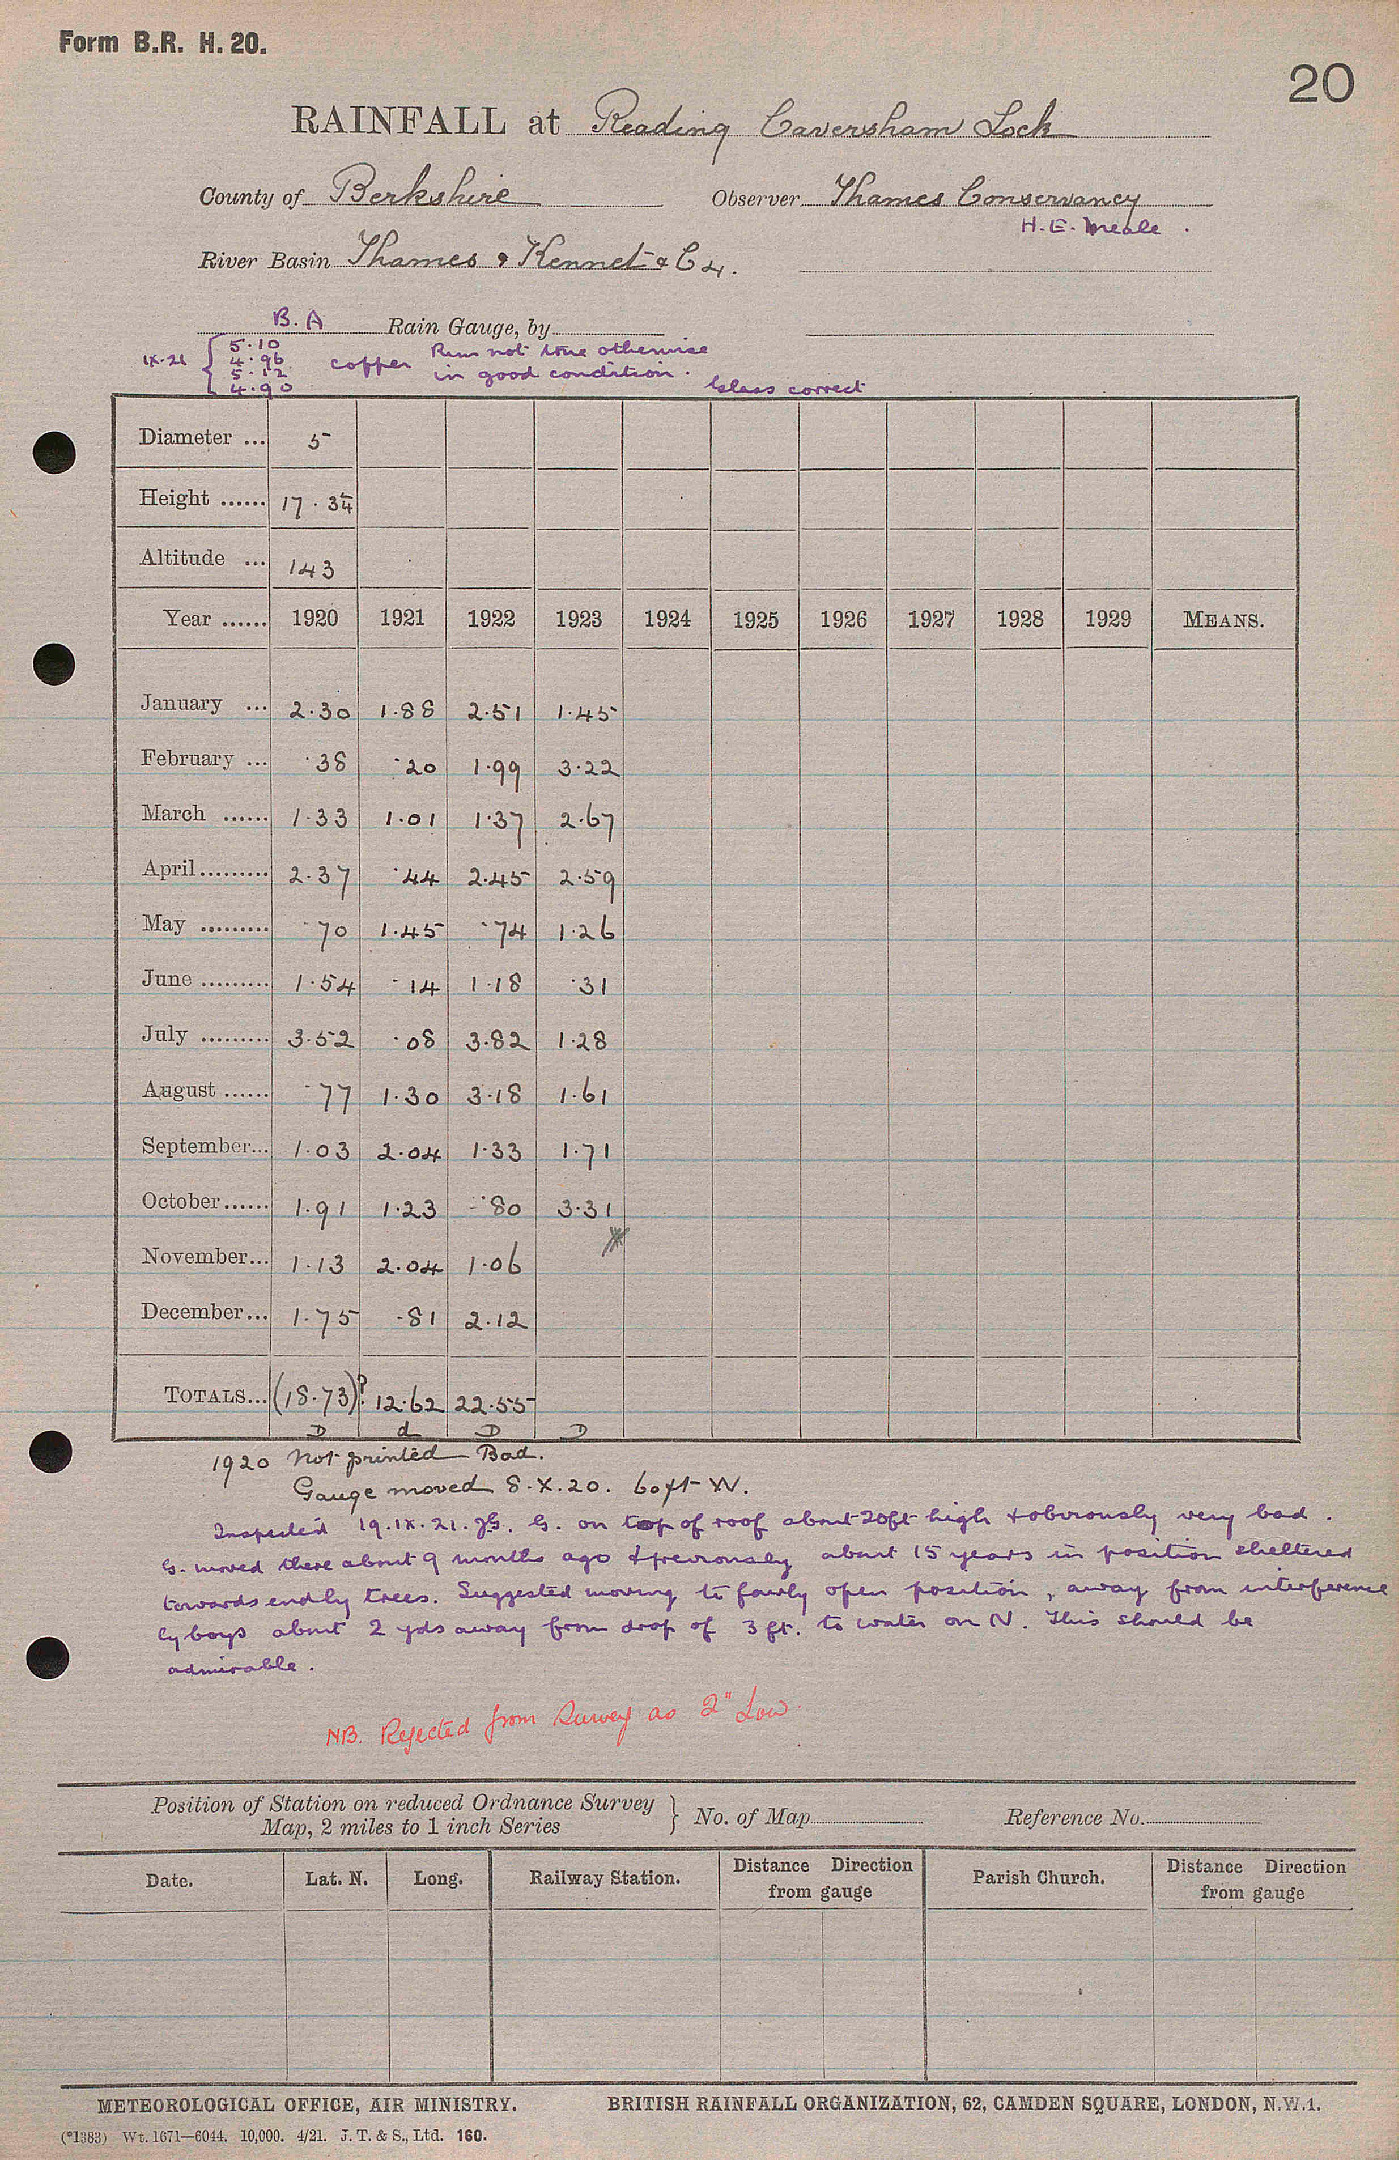 Form B.R. H. 20.
20
RAINFALL at Reading Caversham Lock
County of Berkshire Observer Thames Conservancy
H. E. Meale .
River Basin Thames & Kennet & C 4.
B. A Rain Gauge, by
IX.21 { 5.10 4.96 5.12 4.90 copper Rim not true otherwise in good condition. Glass correct
Diameter ... 5
Height ...... 17.34
Altitude ... 143
Year ...... 1920 1921 1922 1923 1924 1925 1926 1927 1928 1929 MEANS.
January ... 2.30 1.88 2.51 1.45
February ... .38 .20 1.99 3.22
March ...... 1.33 1.01 1.37 2.67
April......... 2.37 .44 2.45 2.59
May ......... .70 1.45 .74 1.26
June ......... 1.54 .14 1.18 .31
July ......... 3.52 .08 3.82 1.28
August ...... .77 1.30 3.18 1.61
September... 1.03 2.04 1.33 1.71
October...... 1.91 1.23 .80 3.31
November... 1.13 2.04 1.06
December... 1.75 .81 2.12
TOTALS... (18.73)? 12.62 22.55
D d D D
1920 Not printed Bad.
Gauge moved 8.X.20. 60ft W.
Inspected 19.IX.21. G. on top of roof about 20ft high & obviously very bad.
G. moved there about 9 months ago & previously about 15 years in position sheltered
towards endly trees. Suggested moving to fairly open position, away from interference
by boys about 2 yds away from drop of 3 ft. to water on N. This should be
admirable.
NB. Rejected from Survey as 2" Low.
Position of Station on reduced Ordnance Survey
Map, 2 miles to 1 inch Series } No. of Map Reference No.
Date. Lat. N. Long. Railway Station. Distance Direction from gauge Parish Church. Distance Direction from gauge
METEOROLOGICAL OFFICE, AIR MINISTRY. BRITISH RAINFALL ORGANIZATION, 62, CAMDEN SQUARE, LONDON, N.W.1.
(*1383) Wt. 1671—6044. 10,000. 4/21. J. T. & S., Ltd. 160.